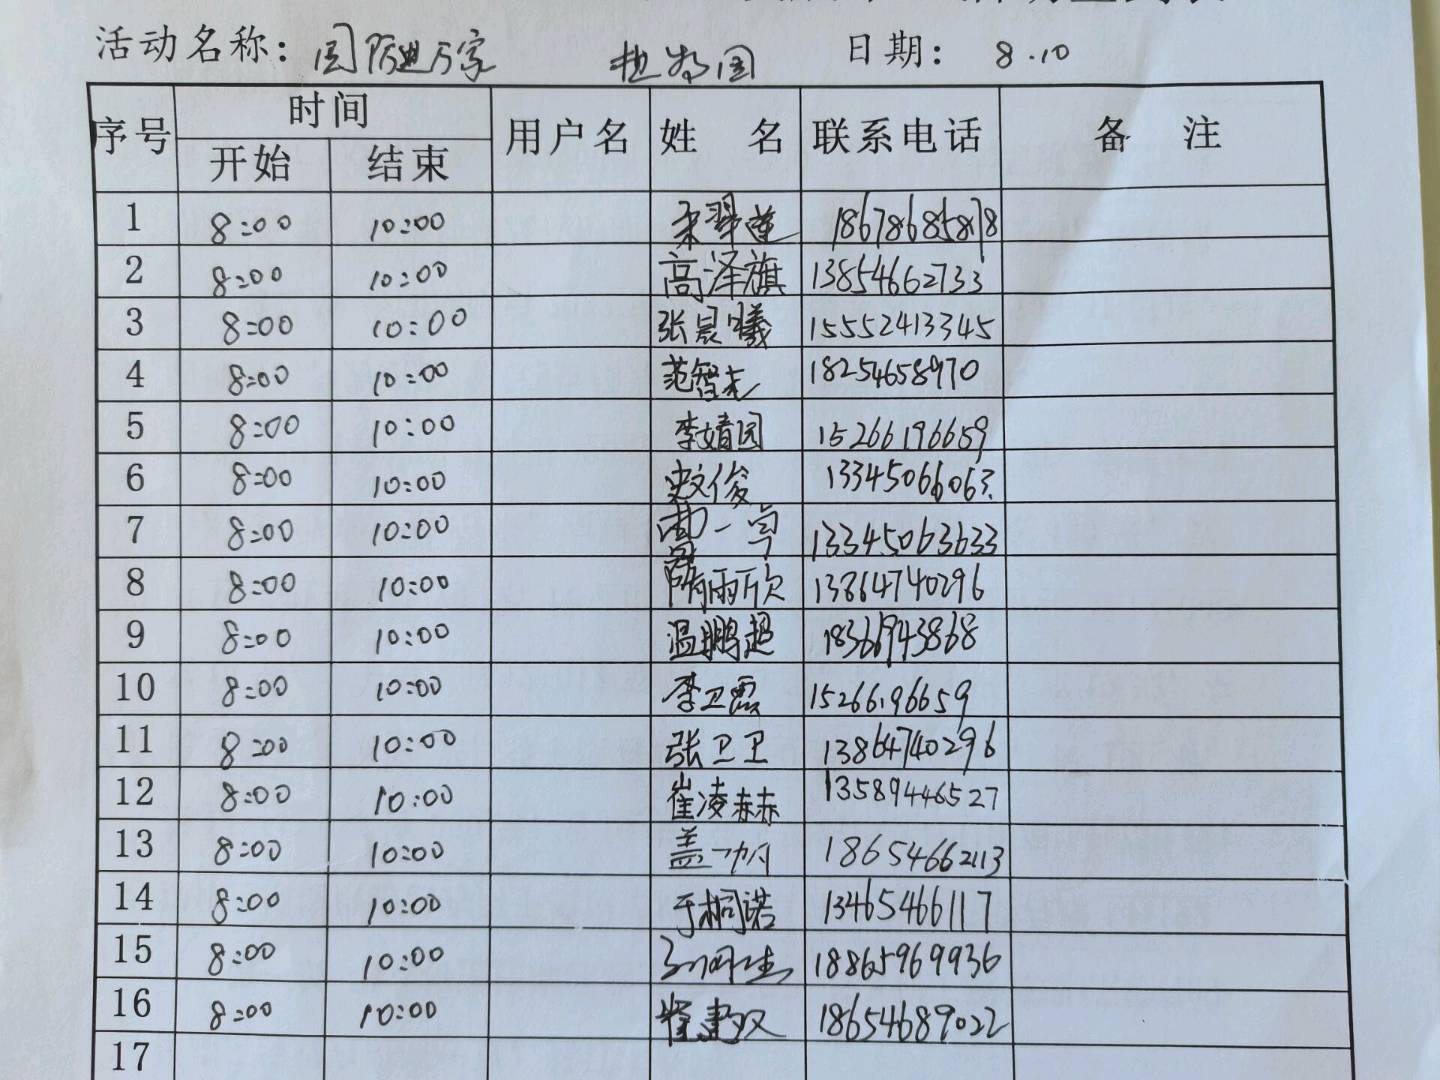 活动名称：国防进万家 日期：8.10
序号 时间 用户名 姓 名 联系电话 备 注
开始 结束
1 8:00 10:00 18678685878
2 8:00 10:00 高泽旗 13854662733
3 8:00 10:00 张晨曦 15552413345
4 8:00 10:00 范智尧 18254658970
5 8:00 10:00 李婧园 15266196659
6 8:00 10:00 13345066063
7 8:00 10:00 13345063633
8 8:00 10:00 隋雨欣 13864740296
9 8:00 10:00 温鹏超 18366943868
10 8:00 10:00 李卫霞 15266196659
11 8:00 10:00 张卫卫 13864740296
12 8:00 10:00 崔凌赫 13589446527
13 8:00 10:00 盖一帆 18654662113
14 8:00 10:00 于桐诺 13465466117
15 8:00 10:00 18865969936
16 8:00 10:00 18654689022
17